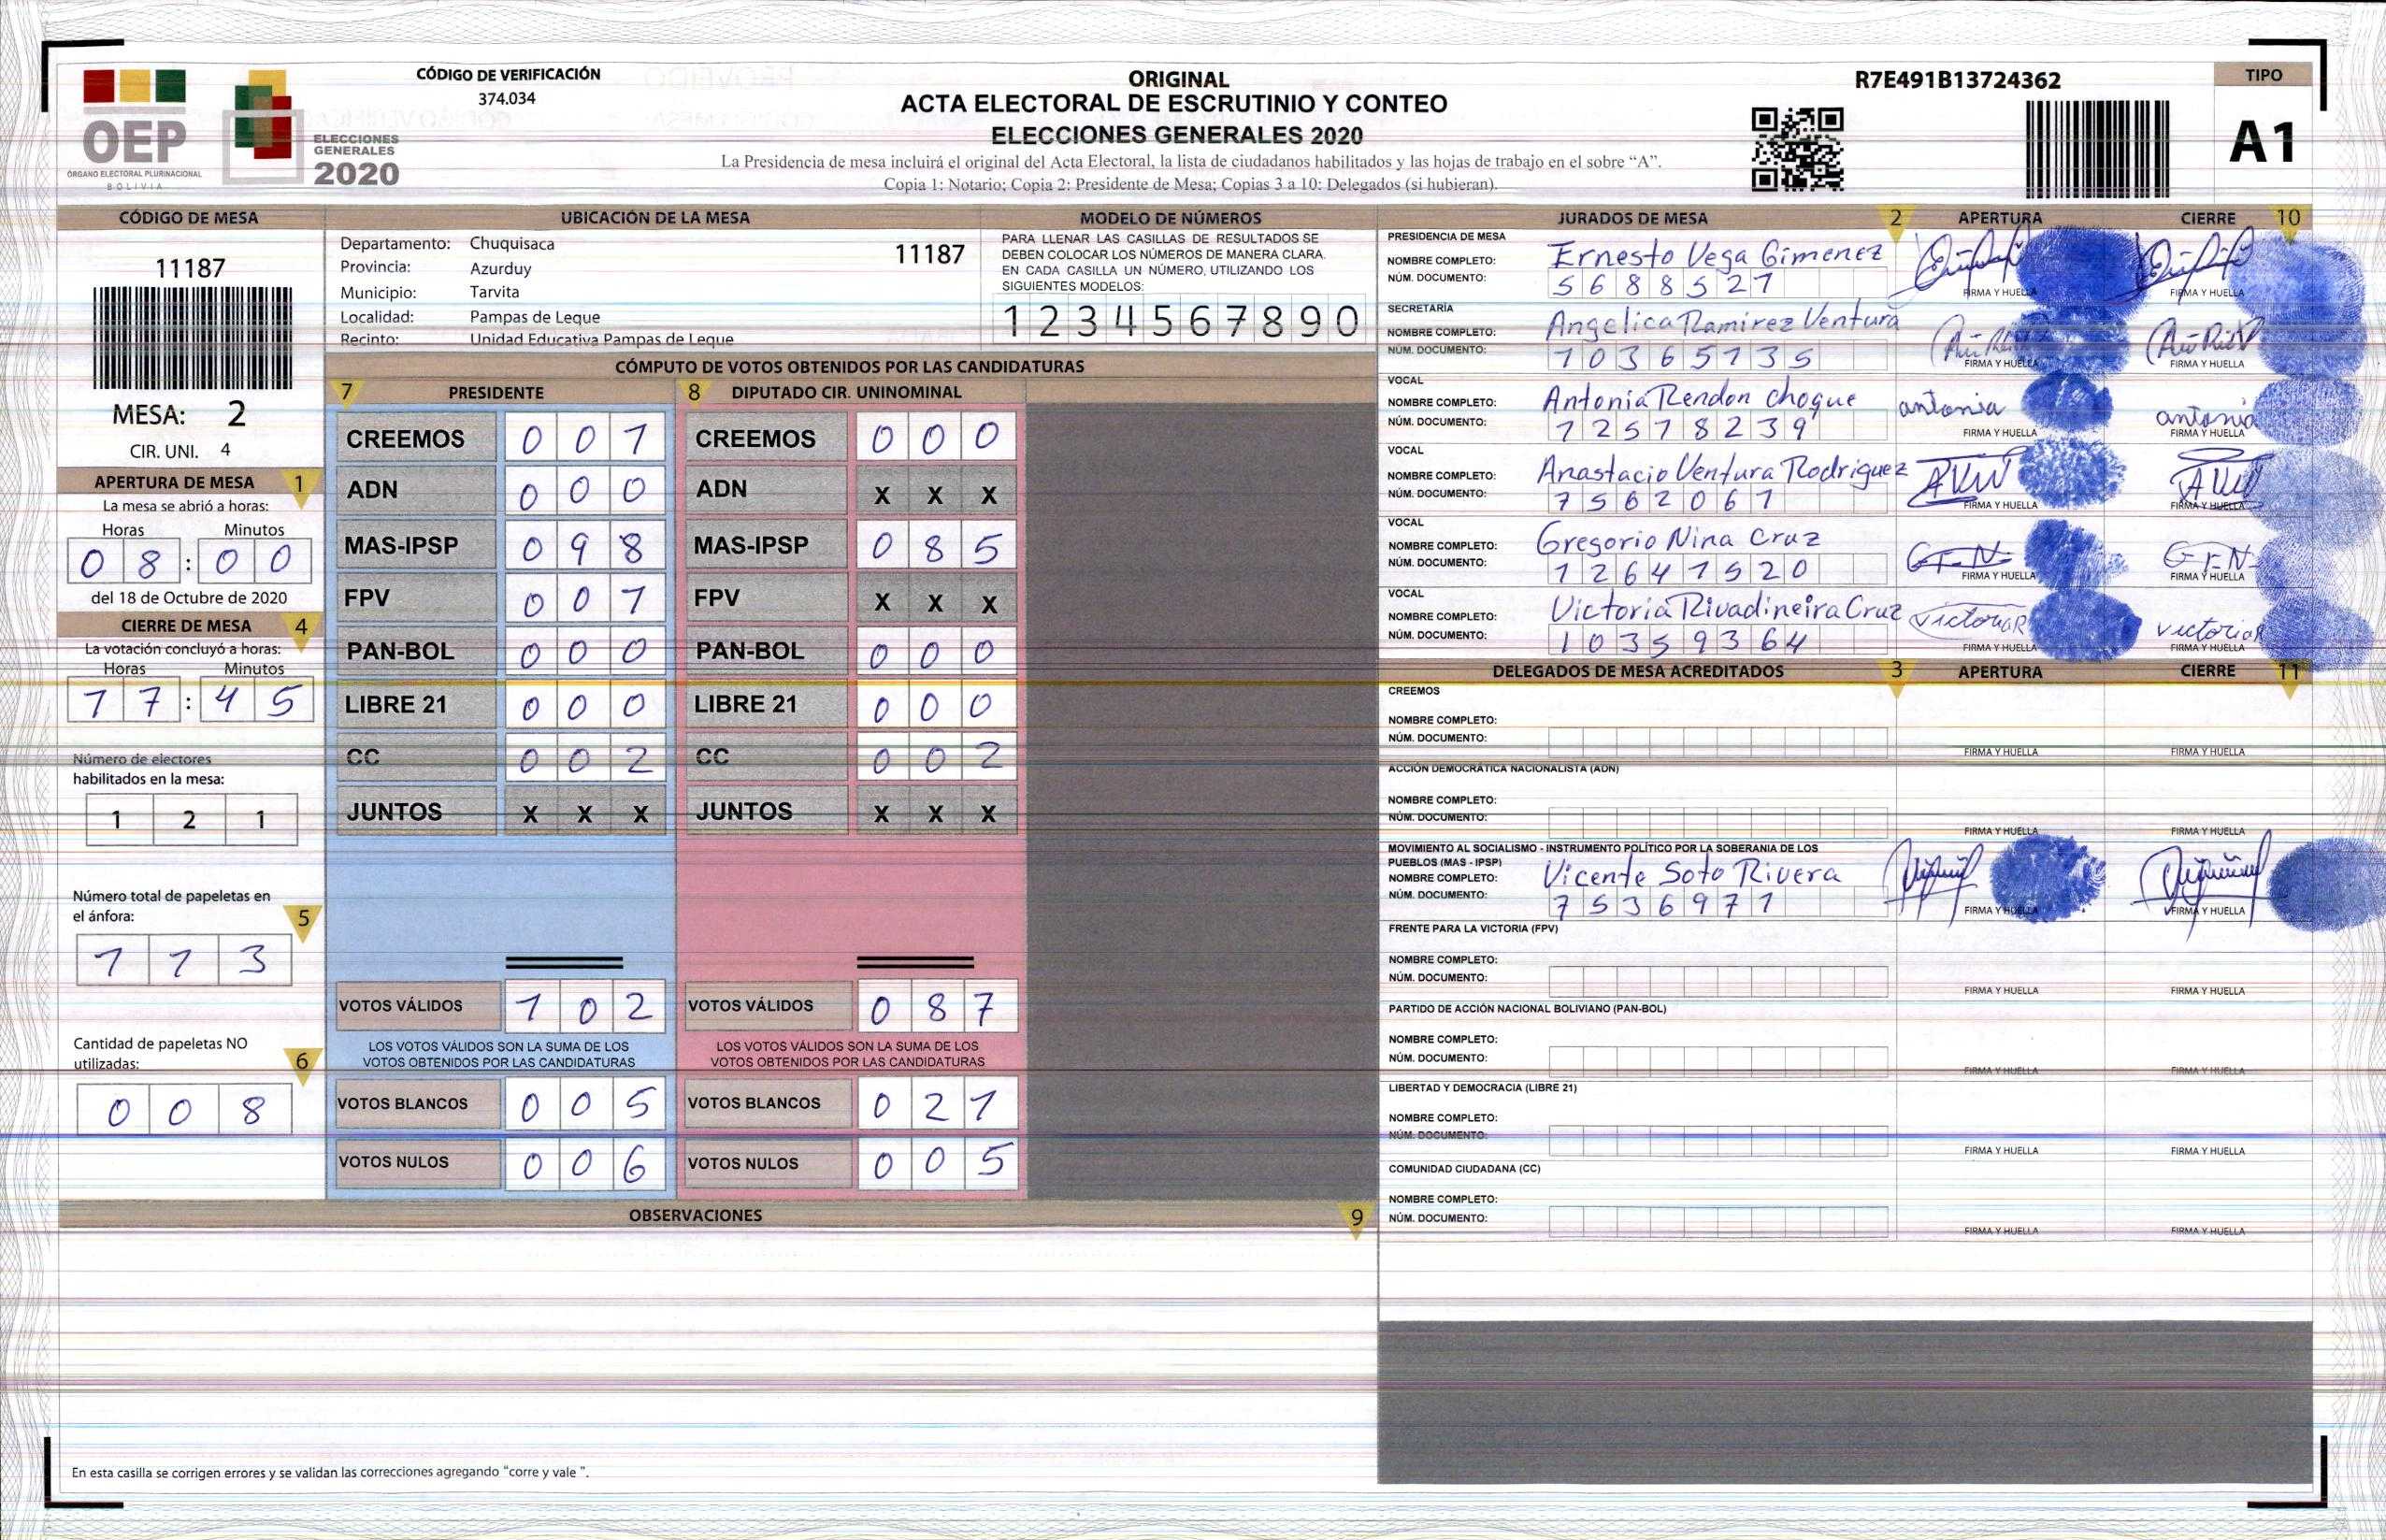 CÓDIGO DE VERIFICACIÓN
374.034
ORIGINAL
ACTA ELECTORAL DE ESCRUTINIO Y CONTEO
ELECCIONES GENERALES 2020
La Presidencia de mesa incluirá el original del Acta Electoral, la lista de ciudadanos habilitados y las hojas de trabajo en el sobre “A”.
Copia 1: Notario; Copia 2: Presidente de Mesa; Copias 3 a 10: Delegados (si hubieran).
R7E491B13724362
TIPO
A1
OEP
ÓRGANO ELECTORAL PLURINACIONAL
BOLIVIA
ELECCIONES
GENERALES
2020
CÓDIGO DE MESA
11187
MESA: 2
CIR. UNI. 4
APERTURA DE MESA 1
La mesa se abrió a horas:
Horas Minutos
0 8 : 0 0
del 18 de Octubre de 2020
CIERRE DE MESA 4
La votación concluyó a horas:
Horas Minutos
1 7 : 4 5
Número de electores
habilitados en la mesa:
1 2 1
Número total de papeletas en
el ánfora: 5
1 1 3
Cantidad de papeletas NO
utilizadas: 6
0 0 8
UBICACIÓN DE LA MESA
Departamento: Chuquisaca
11187
Provincia: Azurduy
Municipio: Tarvita
Localidad: Pampas de Leque
Recinto: Unidad Educativa Pampas de Leque
MODELO DE NÚMEROS
PARA LLENAR LAS CASILLAS DE RESULTADOS SE
DEBEN COLOCAR LOS NÚMEROS DE MANERA CLARA.
EN CADA CASILLA UN NÚMERO, UTILIZANDO LOS
SIGUIENTES MODELOS:
1 2 3 4 5 6 7 8 9 0
CÓMPUTO DE VOTOS OBTENIDOS POR LAS CANDIDATURAS
7 PRESIDENTE
CREEMOS 0 0 1
ADN 0 0 0
MAS-IPSP 0 9 8
FPV 0 0 1
PAN-BOL 0 0 0
LIBRE 21 0 0 0
CC 0 0 2
JUNTOS X X X
VOTOS VÁLIDOS 1 0 2
LOS VOTOS VÁLIDOS SON LA SUMA DE LOS
VOTOS OBTENIDOS POR LAS CANDIDATURAS
VOTOS BLANCOS 0 0 5
VOTOS NULOS 0 0 6
8 DIPUTADO CIR. UNINOMINAL
CREEMOS 0 0 0
ADN X X X
MAS-IPSP 0 8 5
FPV X X X
PAN-BOL 0 0 0
LIBRE 21 0 0 0
CC 0 0 2
JUNTOS X X X
VOTOS VÁLIDOS 0 8 7
LOS VOTOS VÁLIDOS SON LA SUMA DE LOS
VOTOS OBTENIDOS POR LAS CANDIDATURAS
VOTOS BLANCOS 0 2 1
VOTOS NULOS 0 0 5
OBSERVACIONES 9
En esta casilla se corrigen errores y se validan las correcciones agregando “corre y vale ”.
JURADOS DE MESA 2 APERTURA CIERRE 10
PRESIDENCIA DE MESA
NOMBRE COMPLETO: Ernesto Vega Gimenez
NÚM. DOCUMENTO: 5 6 8 8 5 2 1
FIRMA Y HUELLA FIRMA Y HUELLA
SECRETARÍA
NOMBRE COMPLETO: Angelica Ramirez Ventura
NÚM. DOCUMENTO: 1 0 3 6 5 1 3 5
FIRMA Y HUELLA FIRMA Y HUELLA
VOCAL
NOMBRE COMPLETO: Antonia Rendon choque antonia antonia
NÚM. DOCUMENTO: 1 2 5 1 8 2 3 9
FIRMA Y HUELLA FIRMA Y HUELLA
VOCAL
NOMBRE COMPLETO: Anastacio Ventura Rodriguez
NÚM. DOCUMENTO: 7 5 6 2 0 6 1
FIRMA Y HUELLA FIRMA Y HUELLA
VOCAL
NOMBRE COMPLETO: Gregorio Nina Cruz
NÚM. DOCUMENTO: 1 2 6 4 1 5 2 0
FIRMA Y HUELLA FIRMA Y HUELLA
VOCAL
NOMBRE COMPLETO: Victoria Rivadineira Cruz VictoriaR victoriaR
NÚM. DOCUMENTO: 1 0 3 5 9 3 6 4
FIRMA Y HUELLA FIRMA Y HUELLA
DELEGADOS DE MESA ACREDITADOS 3 APERTURA CIERRE 11
CREEMOS
NOMBRE COMPLETO:
NÚM. DOCUMENTO:
FIRMA Y HUELLA FIRMA Y HUELLA
ACCIÓN DEMOCRÁTICA NACIONALISTA (ADN)
NOMBRE COMPLETO:
NÚM. DOCUMENTO:
FIRMA Y HUELLA FIRMA Y HUELLA
MOVIMIENTO AL SOCIALISMO - INSTRUMENTO POLÍTICO POR LA SOBERANIA DE LOS
PUEBLOS (MAS - IPSP)
NOMBRE COMPLETO: Vicente Soto Rivera
NÚM. DOCUMENTO: 7 5 3 6 9 7 1
FIRMA Y HUELLA FIRMA Y HUELLA
FRENTE PARA LA VICTORIA (FPV)
NOMBRE COMPLETO:
NÚM. DOCUMENTO:
FIRMA Y HUELLA FIRMA Y HUELLA
PARTIDO DE ACCIÓN NACIONAL BOLIVIANO (PAN-BOL)
NOMBRE COMPLETO:
NÚM. DOCUMENTO:
FIRMA Y HUELLA FIRMA Y HUELLA
LIBERTAD Y DEMOCRACIA (LIBRE 21)
NOMBRE COMPLETO:
NÚM. DOCUMENTO:
FIRMA Y HUELLA FIRMA Y HUELLA
COMUNIDAD CIUDADANA (CC)
NOMBRE COMPLETO:
NÚM. DOCUMENTO:
FIRMA Y HUELLA FIRMA Y HUELLA